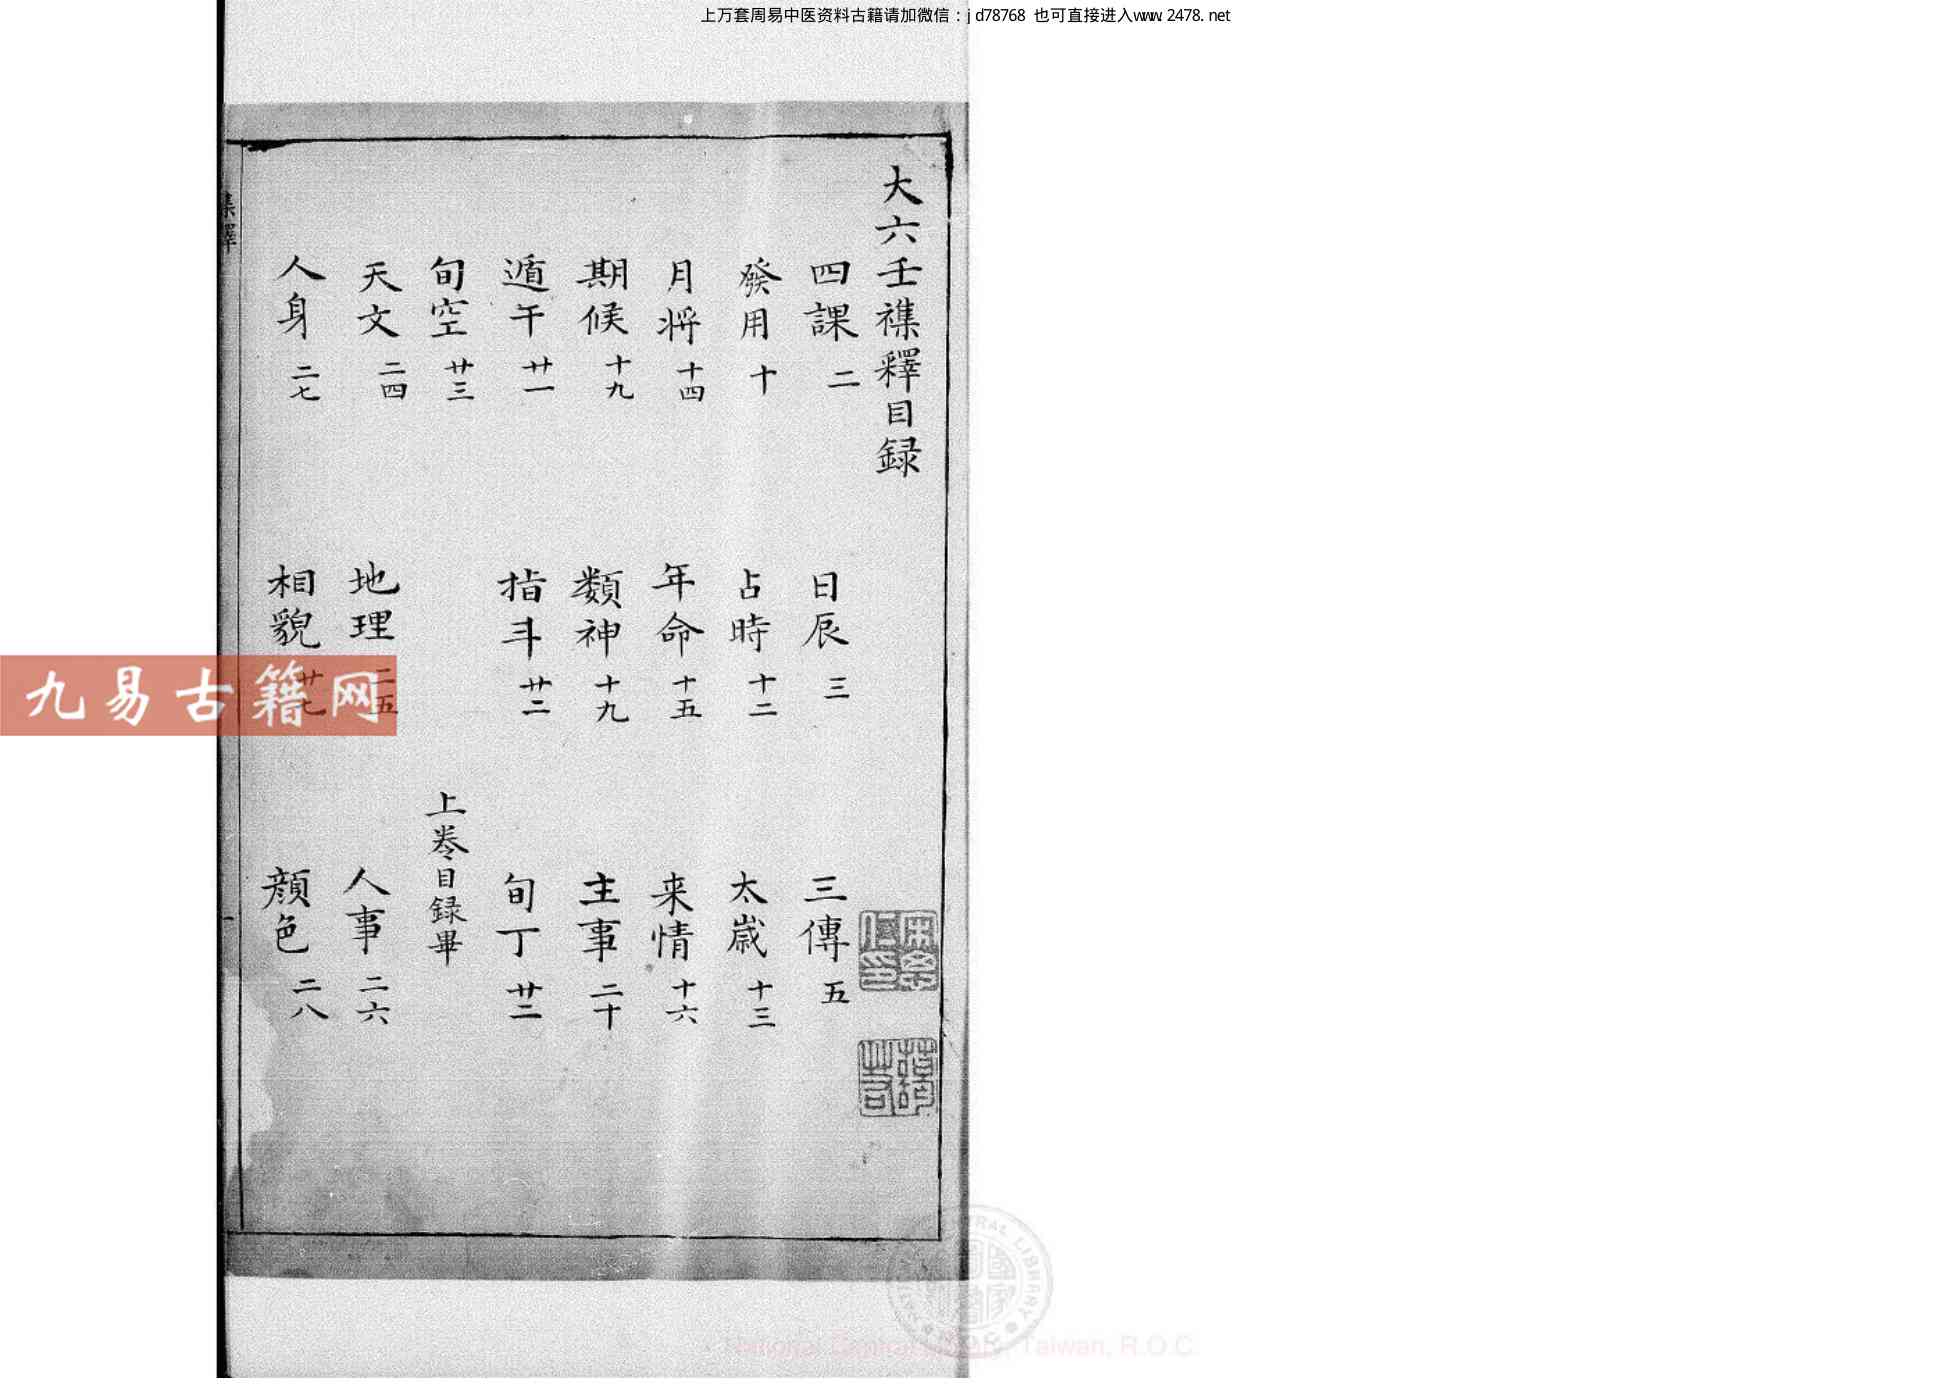 上万套周易中医资料古籍请加微信：jd78768 也可直接进入www.2478.net
大六壬襍釋目録
四課 二 日辰 三 三傳 五
發用 十 占時 十二 太歲 十三
月将 十四 年命 十五 来情 十六
期候 十九 類神 十九 主事 二十
遁干 廿一 指斗 廿二 旬丁 廿二
旬空 廿三 上卷目録畢
天文 二四 地理 二五 人事 二六
人身 二七 相貌 廿七 顔色 二八
集釋
九易古籍网
National Central Library, Taiwan, R.O.C.